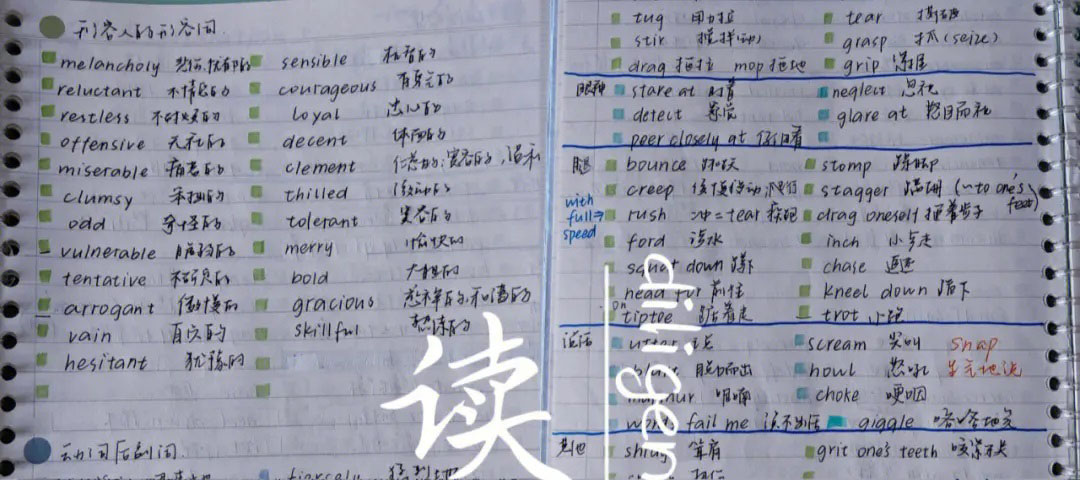 形容人的形容词
melancholy 悲伤,忧郁的 sensible 机智的
reluctant 不情愿的 courageous 有勇气的
restless 不耐烦的 loyal 忠心的
offensive 无礼的 decent 体面的
miserable 痛苦的 clement 仁慈的,宽容的,温和
clumsy 笨拙的 thilled 激动的
odd 奇怪的 tolerant 宽容的
vulnerable 脆弱的 merry 愉快的
tentative 犹豫的 bold 大胆的
arrogant 傲慢的 gracious 慈祥的,和蔼的
vain 自负的 skillful 熟练的
hesitant 犹豫的
动词后副词
fiercely 猛烈地
tug 用力拉 tear 撕碎
stir 搅拌(动) grasp 抓(seize)
drag 拖拉 mop 拖地 grip 紧握
眼神 stare at 盯着 neglect 忽视
detect 察觉 glare at 怒目而视
peer closely at 仔细看
腿 bounce 蹦跳 stomp 跺脚
creep 缓慢移动,爬行 stagger 蹒跚 (~to one's feet)
with full speed rush 冲=tear 疾跑 drag oneself 拖着步子
ford 涉水 inch 小步走
squat down 蹲下 chase 追逐
head for 前往 kneel down 跪下
on tiptoe 踮着走 trot 小跑
说话 utter scream 尖叫 snap
blurt 脱口而出 howl 怒吼 生气地说
murmur 呢喃 choke 哽咽
words fail me 说不出话 giggle 咯咯地笑
其他 shrug 耸肩 grit one's teeth 咬紧牙关
读
diligen